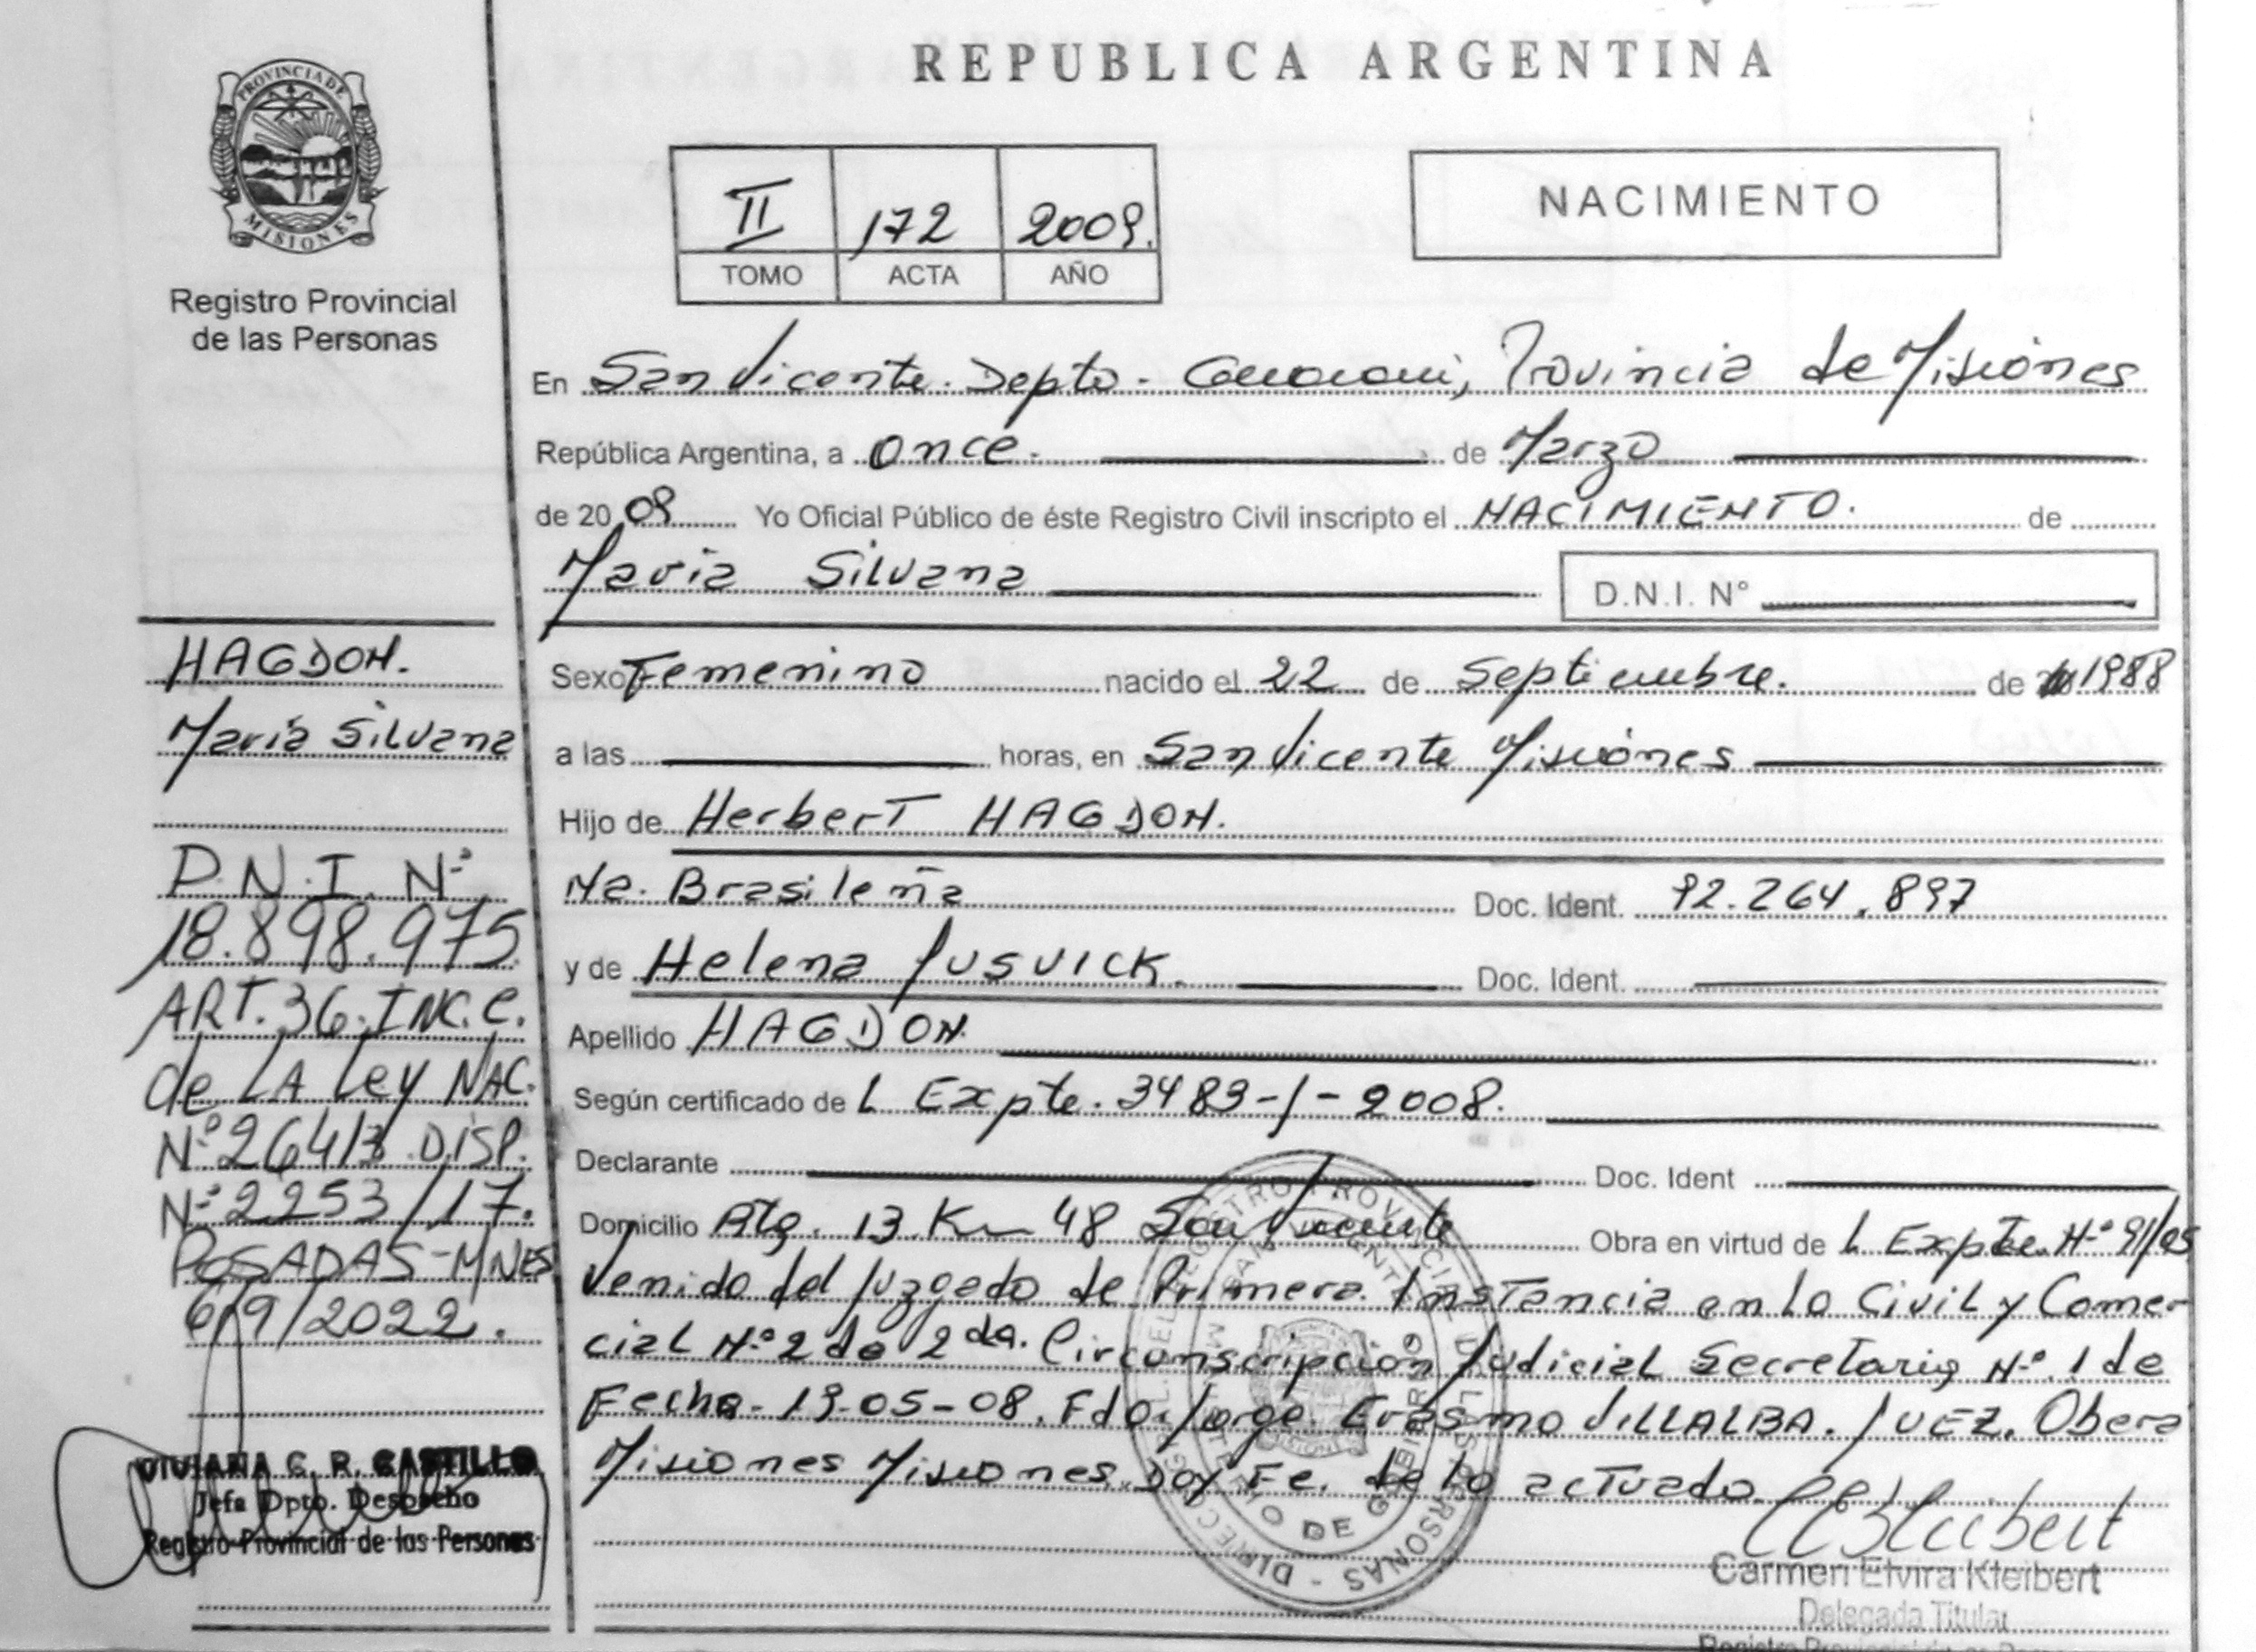 REPUBLICA ARGENTINA
PROVINCIA DE
MISIONES
Registro Provincial
de las Personas
II 172 2009.
TOMO ACTA AÑO
NACIMIENTO
En San Vicente. Depto. Guarani, Provincia de Misiones
República Argentina, a once. de Marzo
de 20 09 Yo Oficial Público de éste Registro Civil inscripto el NACIMIENTO. de
Maria Silvana D.N.I. Nº
Sexo Femenino nacido el 22 de Septiembre. de 1988
a las horas, en San Vicente Misiones
Hijo de Herbert HAGDON.
Na. Brasileña Doc. Ident. 92.264.897
y de Helena JUSVICK. Doc. Ident.
Apellido HAGDON.
Según certificado de L Expte. 3483-/-2008.
Declarante Doc. Ident
Domicilio Ptg. 13. Km 48 San Vicente Obra en virtud de L Expte. Nº 91/05
Venido del Juzgado de Primera Instancia en lo Civil y Comer-
cial Nº 2 de 2da. Circunscripcion Judicial Secretaria Nº 1 de
Fecha. 19-05-08. Fdo. Jorge Erasmo VILLALBA. JUEZ. Obera
Misiones Misiones. Doy Fe. de lo actuado
Carmen Elvira Kleibert
Delegada Titular
HAGDON.
Maria Silvana
D.N.I. Nº
18.898.975
ART. 36. INC. C.
de LA Ley NAC.
Nº 26413 DISP.
Nº 2253/17.
POSADAS-MNES
6/9/2022.
VIVIANA C. R. CASTILLO
Jefa Dpto. Despacho
Registro Provincial de las Personas